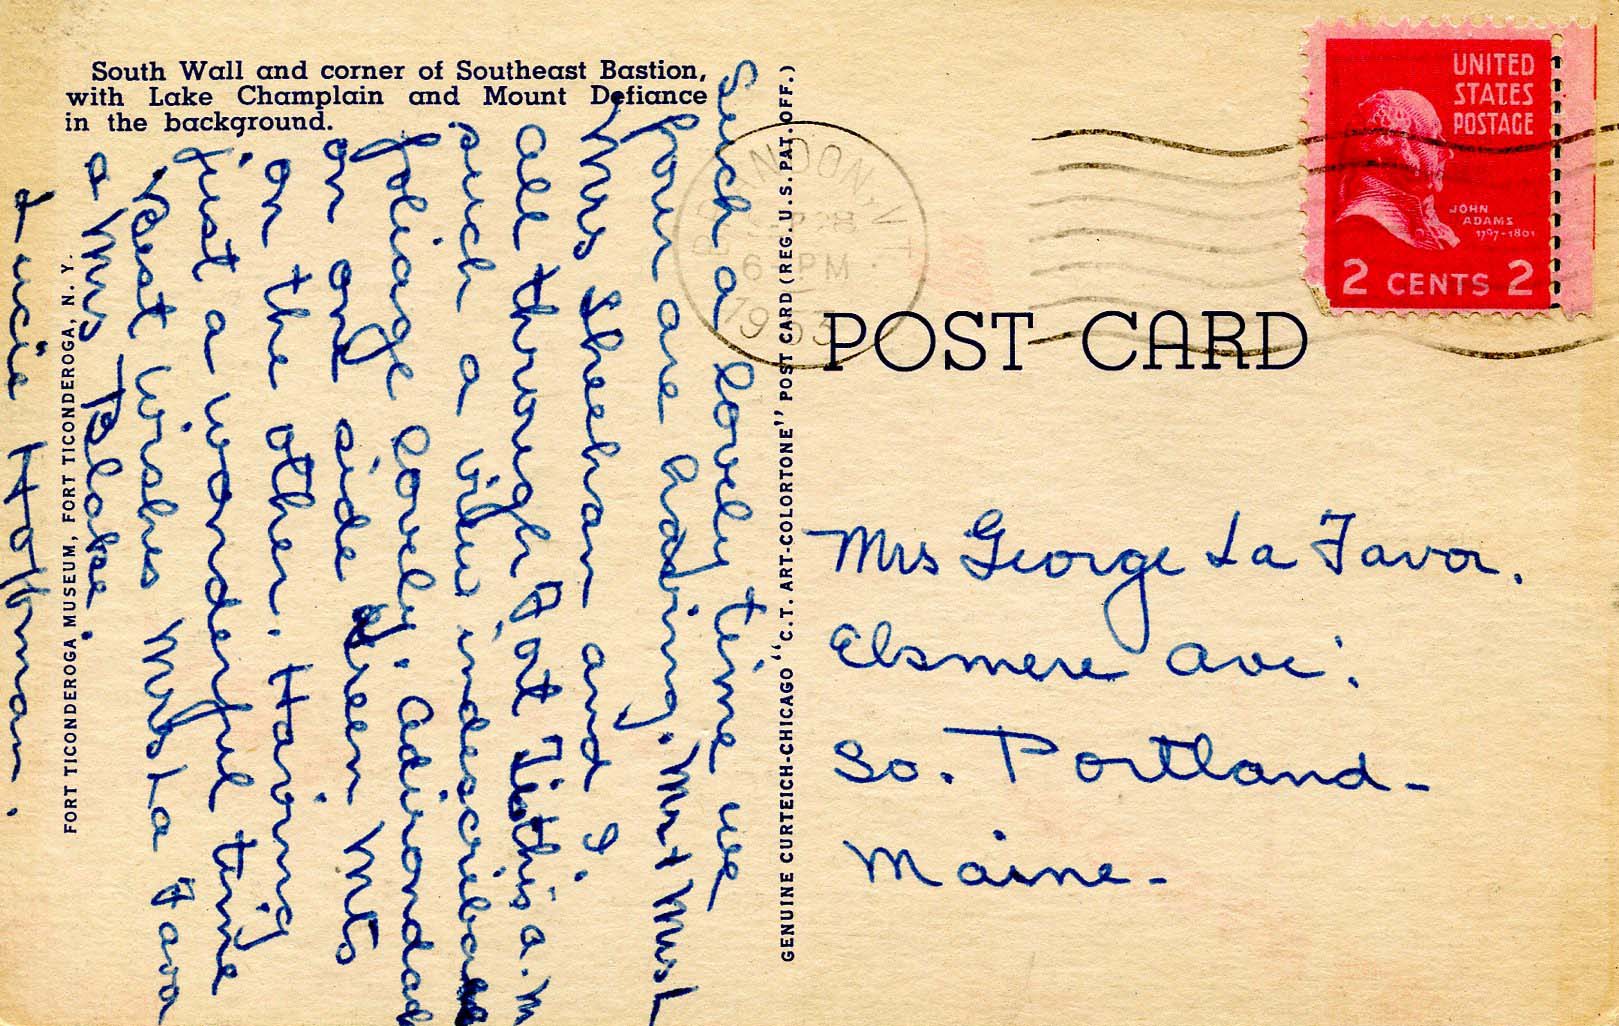 South Wall and corner of Southeast Bastion,
with Lake Champlain and Mount Defiance
in the background.
Such a lovely time we
four are having. Mr + Mrs L
Mrs Sheehan and I.
all through Fort Ti this a.m
such a view indescribable
foliage lovely. Adirondack
on one side Green Mts
on the other. Having
just a wonderful time
Best wishes Mrs La Favor
a Mrs Blake.
Lucie Hoffman.
FORT TICONDEROGA MUSEUM, FORT TICONDEROGA, N. Y.
GENUINE CURTEICH-CHICAGO "C.T. ART-COLORTONE" POST CARD (REG. U.S. PAT. OFF.)
BRANDON, VT
28
6 PM
1953
UNITED
STATES
POSTAGE
JOHN
ADAMS
1797-1801
2 CENTS 2
POST CARD
Mrs George La Favor.
Elsmere Ave.
So. Portland-
Maine-